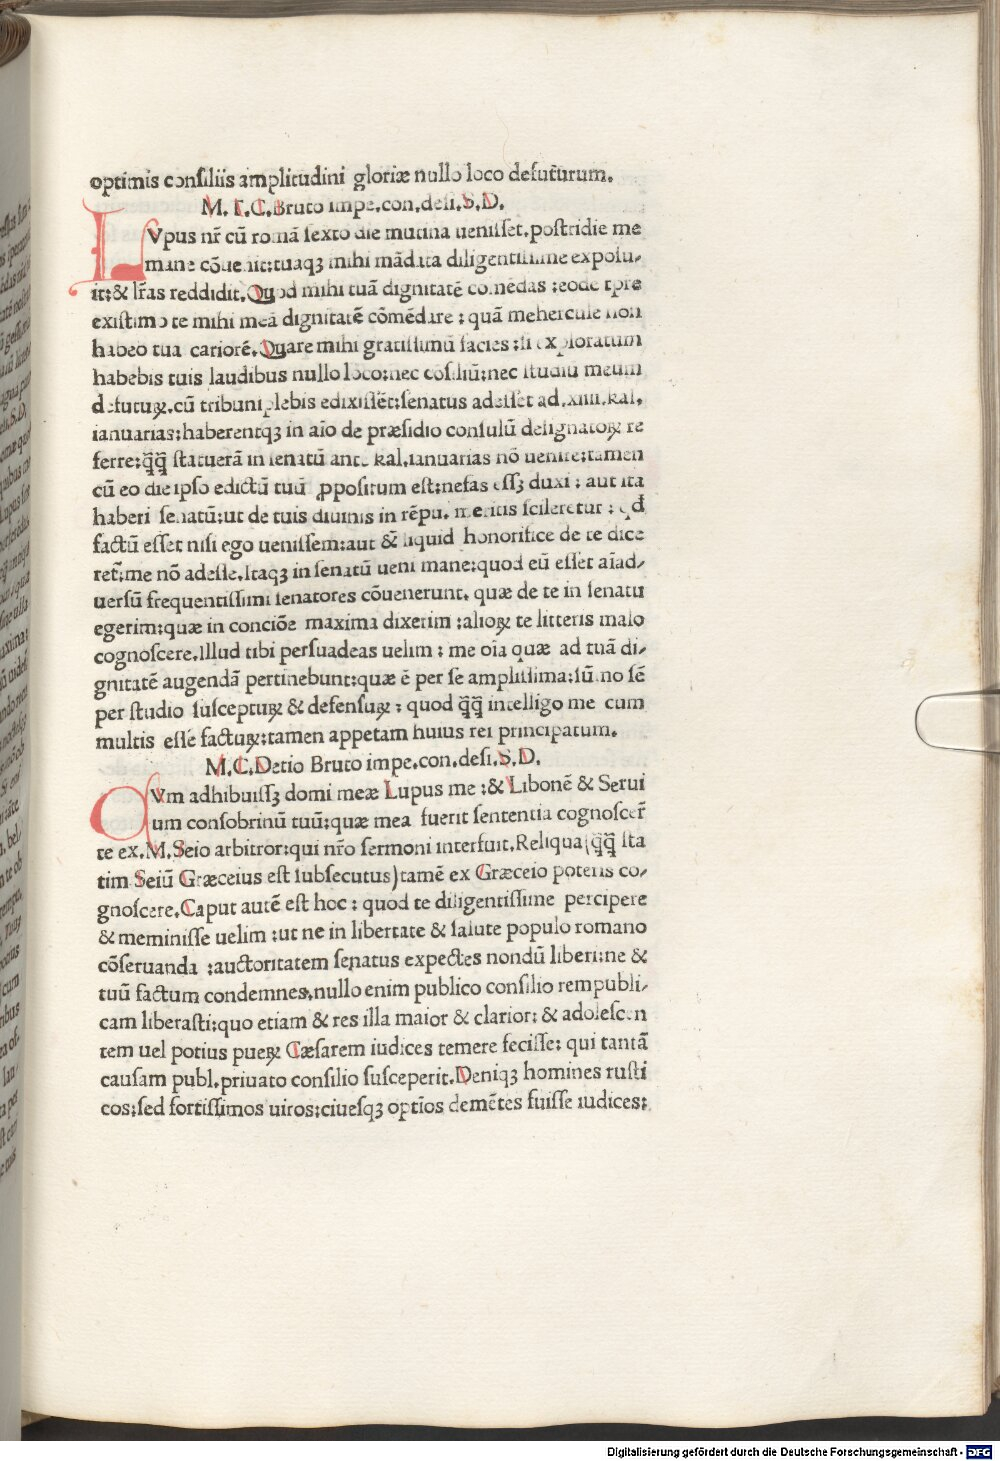 optimis consiliis amplitudini gloriæ nullo loco defuturum.
M. T. C. Bruto impe. con. desi. S. D.
LVpus nr̄ cū romā sexto die mutina uenisset. postridie me
mane cōuenit: tuaqꝫ mihi mādata diligentissime exposu-
it: & lr̄as reddidit. Quod mihi tuā dignitatē cōmēdas: eodē tpre
existimo te mihi meā dignitatē cōmēdare: quā mehercule non
habeo tua cariorē. Quare mihi gratissimū facies: si exploratum
habebis tuis laudibus nullo loco: nec cōsiliū: nec studiū meum
defutuꝝ. cū tribuni plebis edixissēt: senatus adesset ad. xiiii. kal.
ianuarias: haberentqꝫ in aīo de præsidio consulū designatoꝝ re
ferre: q̄q̄ statuerā in senatū ante kal. ianuarias nō uenire: tamen
cū eo die ipso edictū tuū ꝓpositum est: nefas essꝫ duxi: aut ita
haberi senatū: ut de tuis diuinis in rēpu. meritis sileretur: qđ
factū esset nisi ego uenissem: aut & siquid honorifice de te dice
ret̄: me nō adesse. Itaqꝫ in senatū ueni mane: quod cū esset aīad-
uersū frequentissimi senatores cōuenerunt. quæ de te in senatu
egerim: quæ in conciōe maxima dixerim: alioꝝ te litteris malo
cognoscere. Illud tibi persuadeas uelim: me oīa quæ ad tuā di-
gnitatē augendā pertinebunt: quæ ē per se amplissima: sū no sē
per studio susceptuꝝ & defensuꝝ: quod q̄q̄ intelligo me cum
multis esse factuꝝ: tamen appetam huius rei principatum.
M. C. Detio Bruto impe. con. desi. S. D.
QVm adhibuissꝫ domi meæ Lupus me: & Libonē & Serui
um consobrinū tuū: quæ mea fuerit sententia cognoscer̄
te ex. M. Seio arbitror: qui nr̄o sermoni interfuit. Reliqua (q̄q̄ sta
tim Seiū Græceius est subsecutus) tamē ex Græceio poteris co-
gnoscere. Caput autē est hoc: quod te diligentissime percipere
& meminisse uelim: ut ne in libertate & salute populo romano
cōseruanda: auctoritatem senatus expectes nondū liberi: ne &
tuū factum condemnes. nullo enim publico consilio rempubli-
cam liberasti: quo etiam & res illa maior & clarior: & adolescen
tem uel potius pueꝝ Cæsarem iudices temere fecisse: qui tantā
causam publ. priuato consilio susceperit. Deniqꝫ homines rusti
cos: sed fortissimos uiros: ciuesqꝫ optīos demētes fuisse iudices:
Digitalisierung gefördert durch die Deutsche Forschungsgemeinschaft - DFG